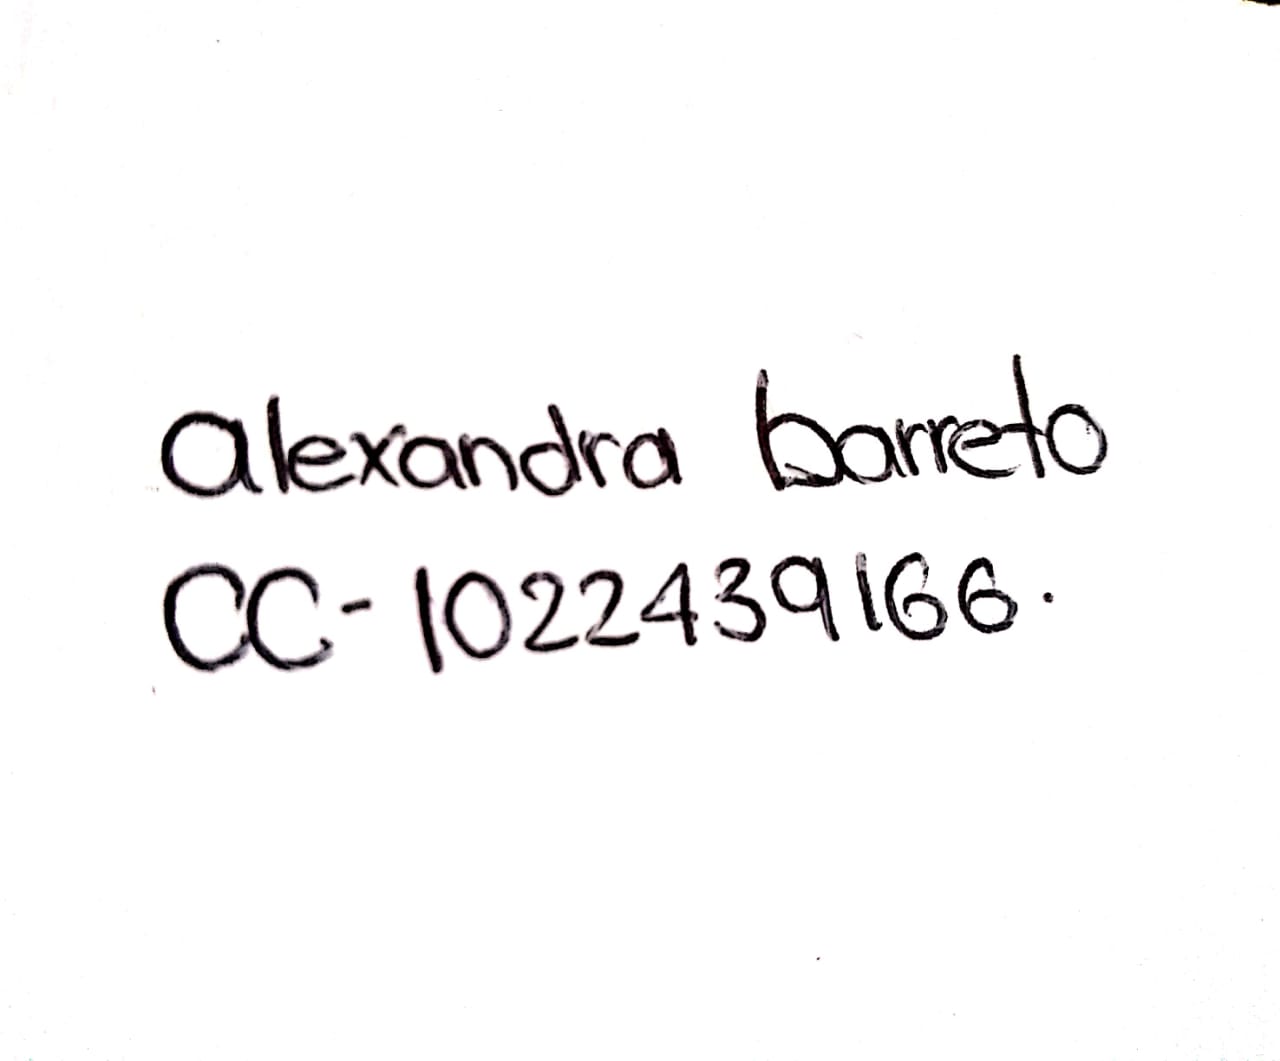 alexandra barreto
CC-1022439166.